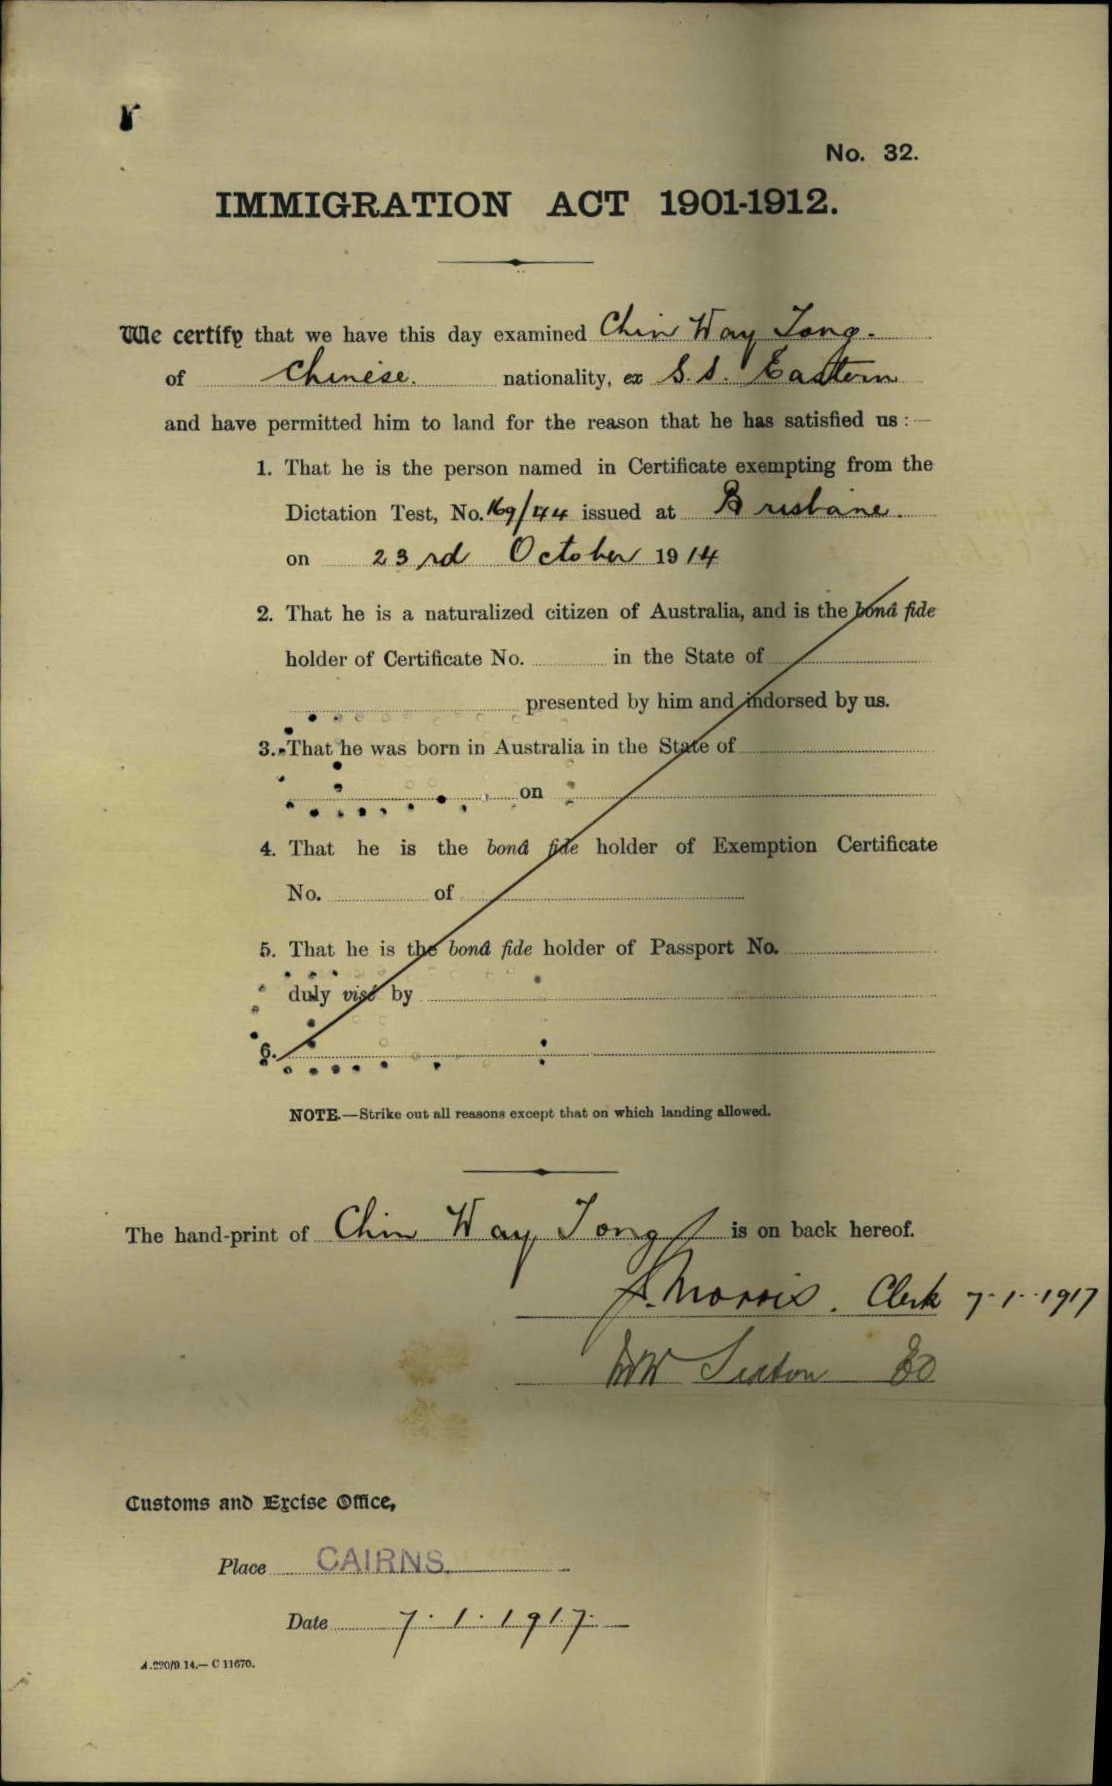 No. 32.
IMMIGRATION ACT 1901-1912.
We certify that we have this day examined Chin Way Tong.
of Chinese. nationality, ex S.S. Eastern
and have permitted him to land for the reason that he has satisfied us :—
1. That he is the person named in Certificate exempting from the
Dictation Test, No. 169/44 issued at Brisbane.
on 23rd October 1914
2. That he is a naturalized citizen of Australia, and is the bonâ fide
holder of Certificate No. in the State of
presented by him and indorsed by us.
3. That he was born in Australia in the State of
on
4. That he is the bonâ fide holder of Exemption Certificate
No. of
5. That he is the bonâ fide holder of Passport No.
duly visé by
6.
NOTE.—Strike out all reasons except that on which landing allowed.
The hand-print of Chin Way Tong is on back hereof.
Morris. Clerk 7-1-1917
Sexton EO
Customs and Excise Office,
Place CAIRNS.
Date 7.1.1917.
A.220/9.14.—C 11670.